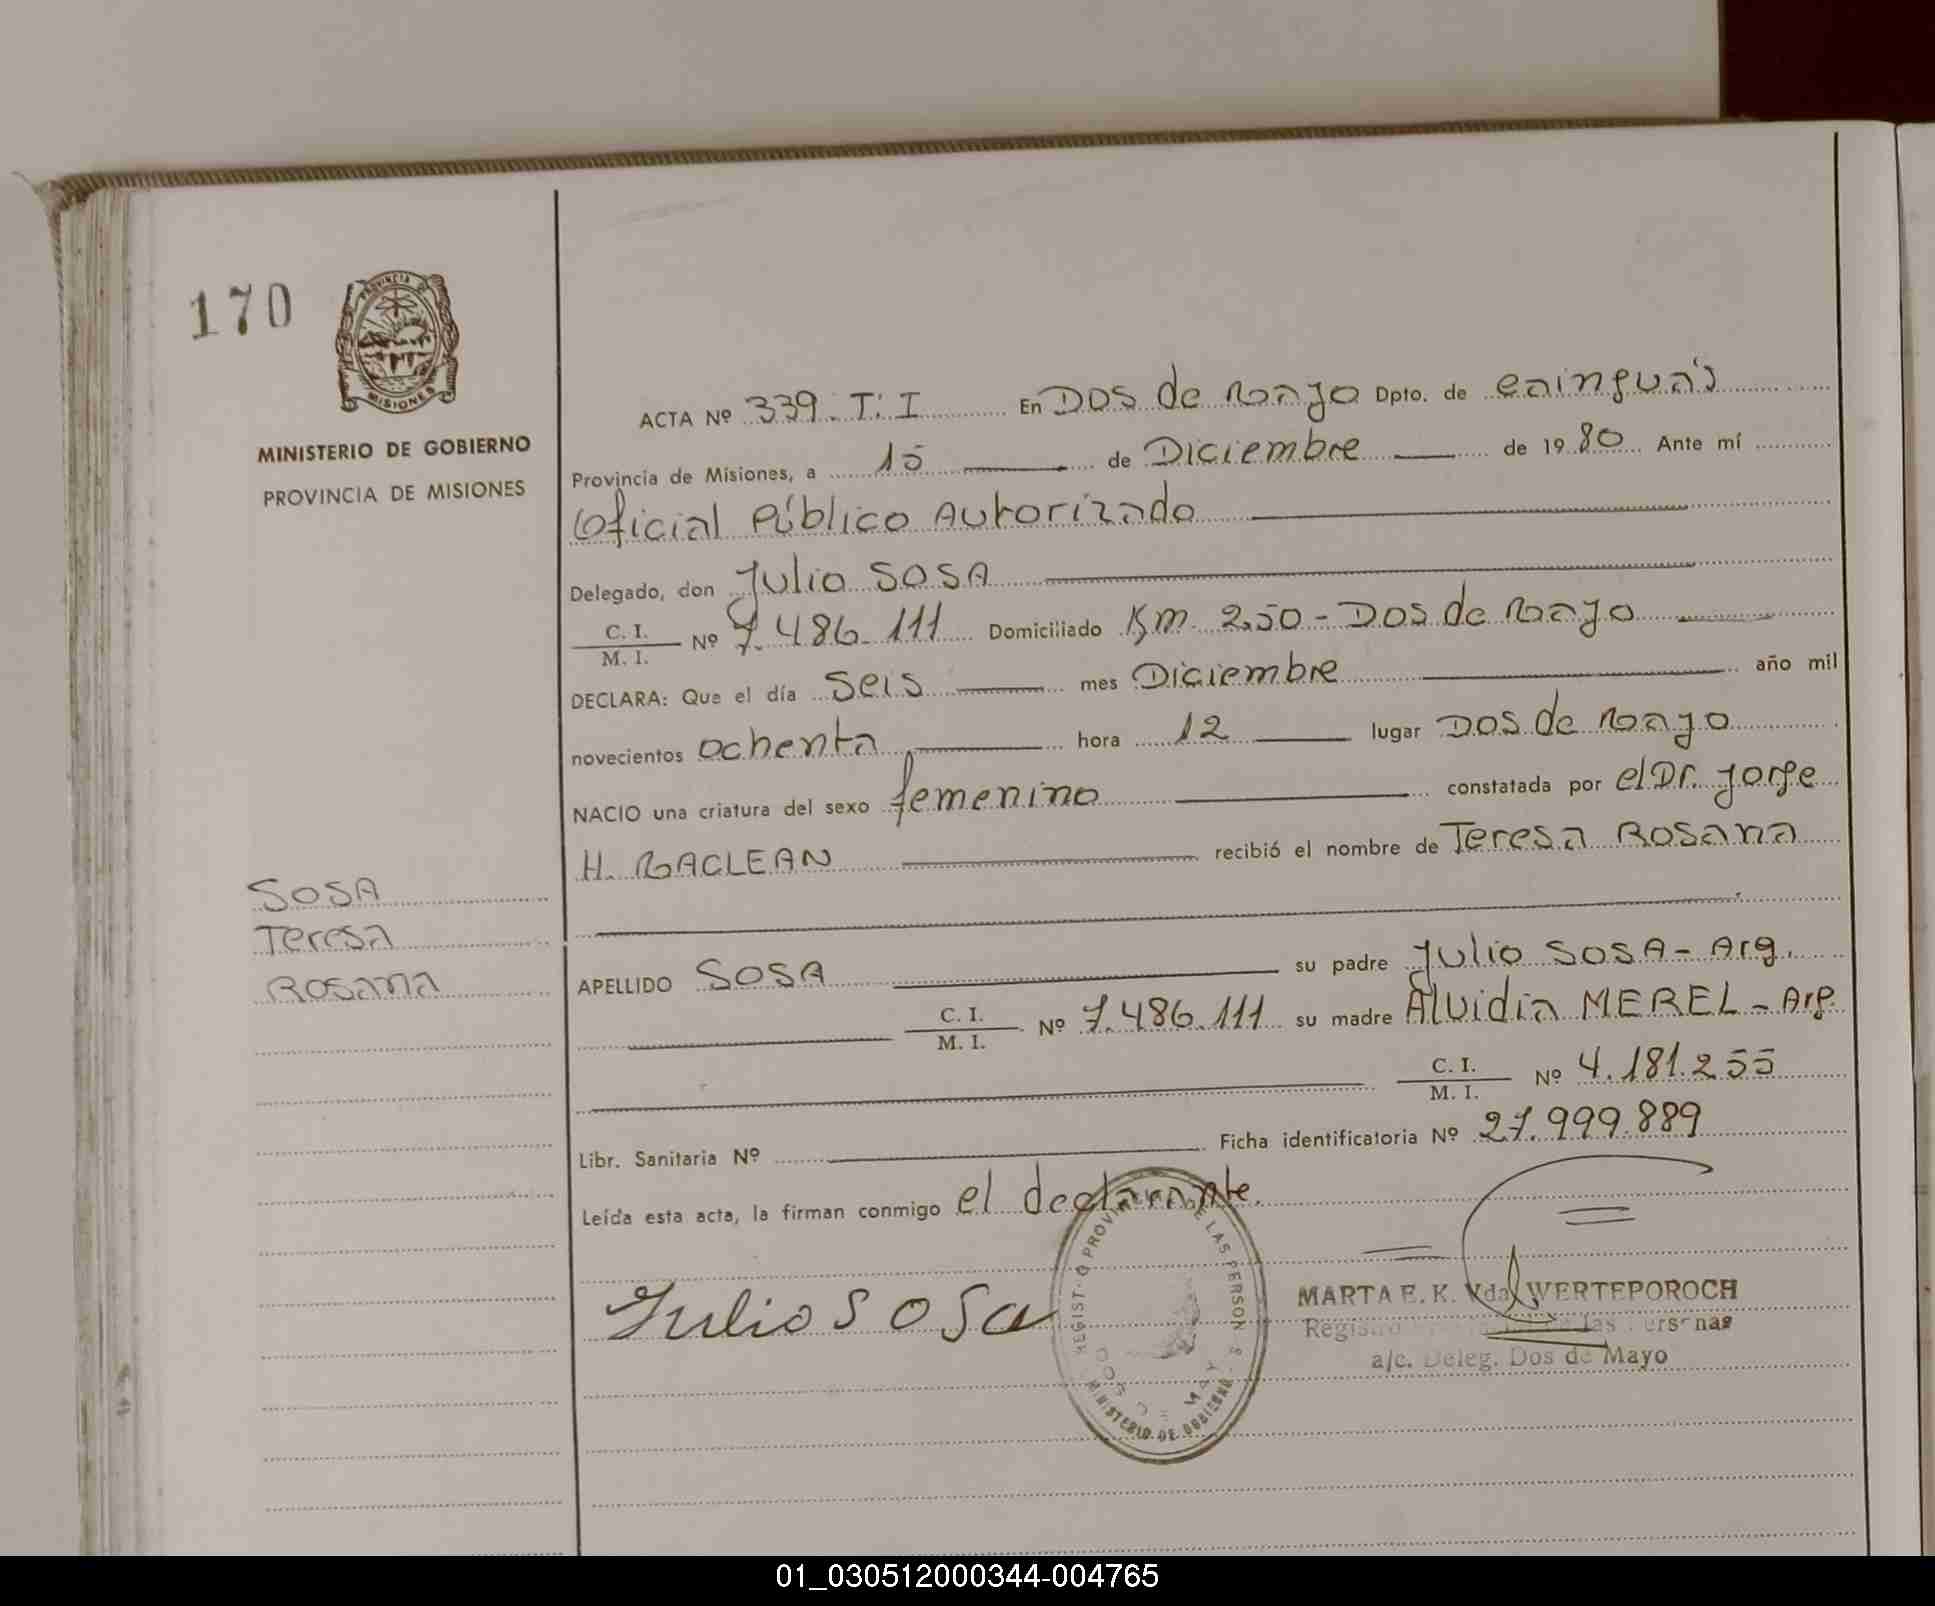 170
PROVINCIA DE
MISIONES
MINISTERIO DE GOBIERNO
PROVINCIA DE MISIONES
SOSA
Teresa
Rosana
ACTA Nº 339. T. I En Dos de Mayo Dpto. de Cainguás
Provincia de Misiones, a 15 de Diciembre de 1980 Ante mí
Oficial Público Autorizado
Delegado, don Julio SOSA
C. I.
M. I. Nº 7.486.111 Domiciliado Km. 250 - Dos de Mayo
DECLARA: Que el día seis mes Diciembre año mil
novecientos ochenta hora 12 lugar Dos de Mayo
NACIO una criatura del sexo femenino constatada por el Dr. Jorge
H. MACLEAN recibió el nombre de Teresa Rosana
APELLIDO SOSA su padre Julio SOSA - Arg.
C. I.
M. I. Nº 7.486.111 su madre Alvidia MEREL - Arg.
C. I.
M. I. Nº 4.181.255
Libr. Sanitaria Nº Ficha identificatoria Nº 27.999.889
Leída esta acta, la firman conmigo el declarante.
Julio Sosa
MINISTERIO DE GOBIERNO
MARTA E. K. Vda. WERTEPOROCH
a/c. Deleg. Dos de Mayo
01_030512000344-004765